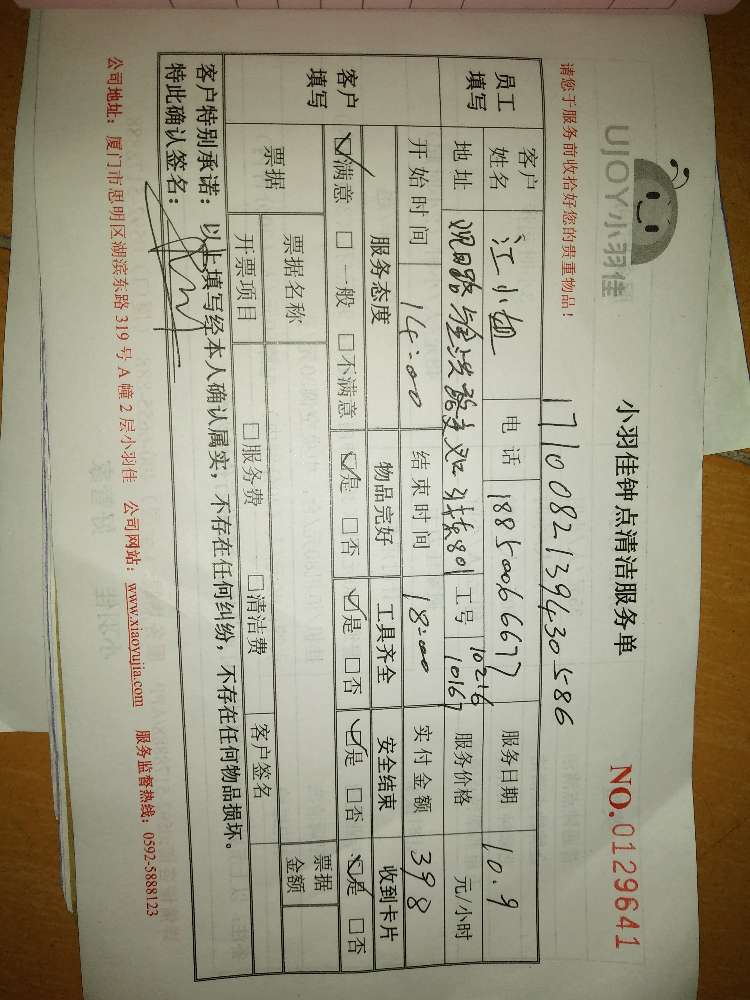 UJOY小羽佳
小羽佳钟点清洁服务单
NO.0129641
请您于服务前收拾好您的贵重物品！
1710082139430586
员工填写 客户姓名 江小姐 电话 18850066677 服务日期 10.9
地址 观日路 801 工号 10216 10167 服务价格 元/小时
开始时间 14:00 结束时间 18:00 实付金额 398
客户填写 服务态度 物品完好 工具齐全 安全结束 收到卡片
☑满意 □一般 □不满意 ☑是 □否 ☑是 □否 ☑是 □否 ☑是 □否
票据 票据名称 票据金额
开票项目 □服务费 □清洁费 客户签名
客户特别承诺：以上填写经本人确认属实，不存在任何纠纷，不存在任何物品损坏。
特此确认签名：
公司地址：厦门市思明区湖滨东路319号A幢2层小羽佳 公司网站：www.xiaoyujia.com 服务监督热线：0592-5888123